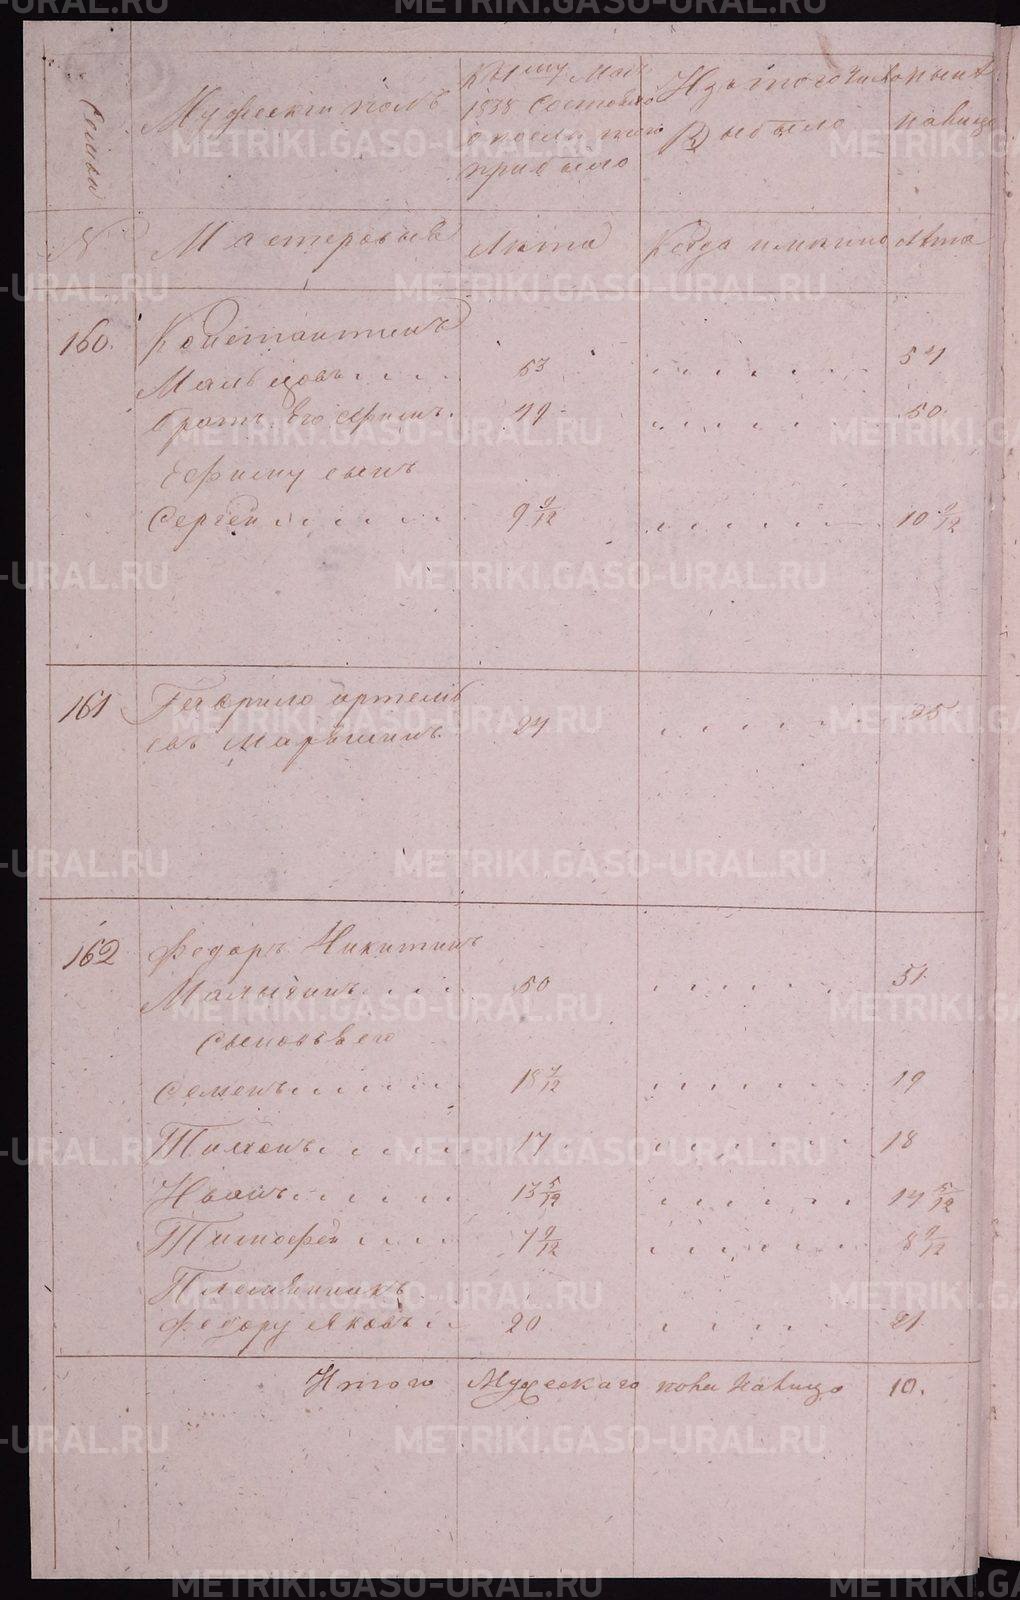 Семьи
Мужескій полъ
К 1му Мая
1838 Состояло
а после того
прибыло
Изъ того числа
Выбыло
ныне
налицо
№
Мастеровыя
Лѣта
Когда имянно
Лѣта
160.
Константинъ
Мальцовъ . . . . 53 . . . . . . . 54
братъ Его Ефимъ. 49 . . . . . . . 50
Ефиму сынъ
Сергей . . . . . . . 9 9/12 . . . . . . . 10 9/12
161
Гаврило артемь
евъ Марьинъ. 24 . . . . . 25
162
Федоръ Никитинъ
Малыгинъ . . . . 50 . . . . . . 51
Сыновья его
Семенъ . . . . . . 18 7/12 . . . . . . 19
Тимонъ . . . . . . 17 . . . . . . 18
Иванъ . . . . . . 13 5/12 . . . . . . 14 5/12
Тимофей . . . . 7 9/12 . . . . . . . 8 9/12
Племянникъ
Федору Яковъ . . 20 . . . . . 21
Итого Мужескаго пола налицо 10.
METRIKI.GASO-URAL.RU